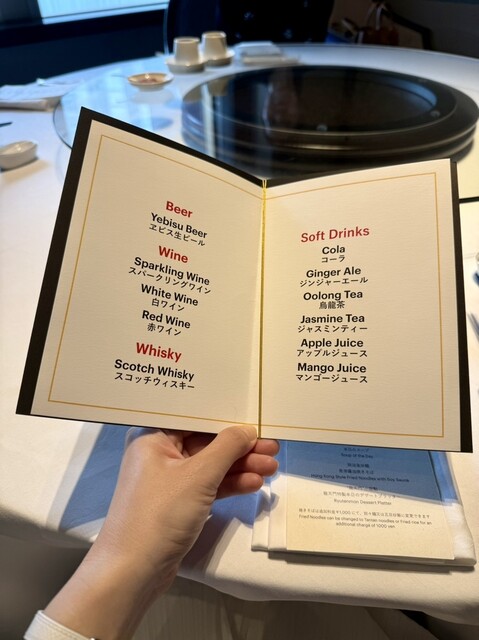 Beer
Yebisu Beer
ヱビス生ビール
Wine
Sparkling Wine
スパークリングワイン
White Wine
白ワイン
Red Wine
赤ワイン
Whisky
Scotch Whisky
スコッチウィスキー
Soft Drinks
Cola
コーラ
Ginger Ale
ジンジャーエール
Oolong Tea
烏龍茶
Jasmine Tea
ジャスミンティー
Apple Juice
アップルジュース
Mango Juice
マンゴージュース
Soup of the Day
Hong Kong Style Fried Noodles with Soy Sauce
Dessert Platter
Fried Noodles can be changed to Tantan noodles or Fried rice for an
additional charge of 1000 yen